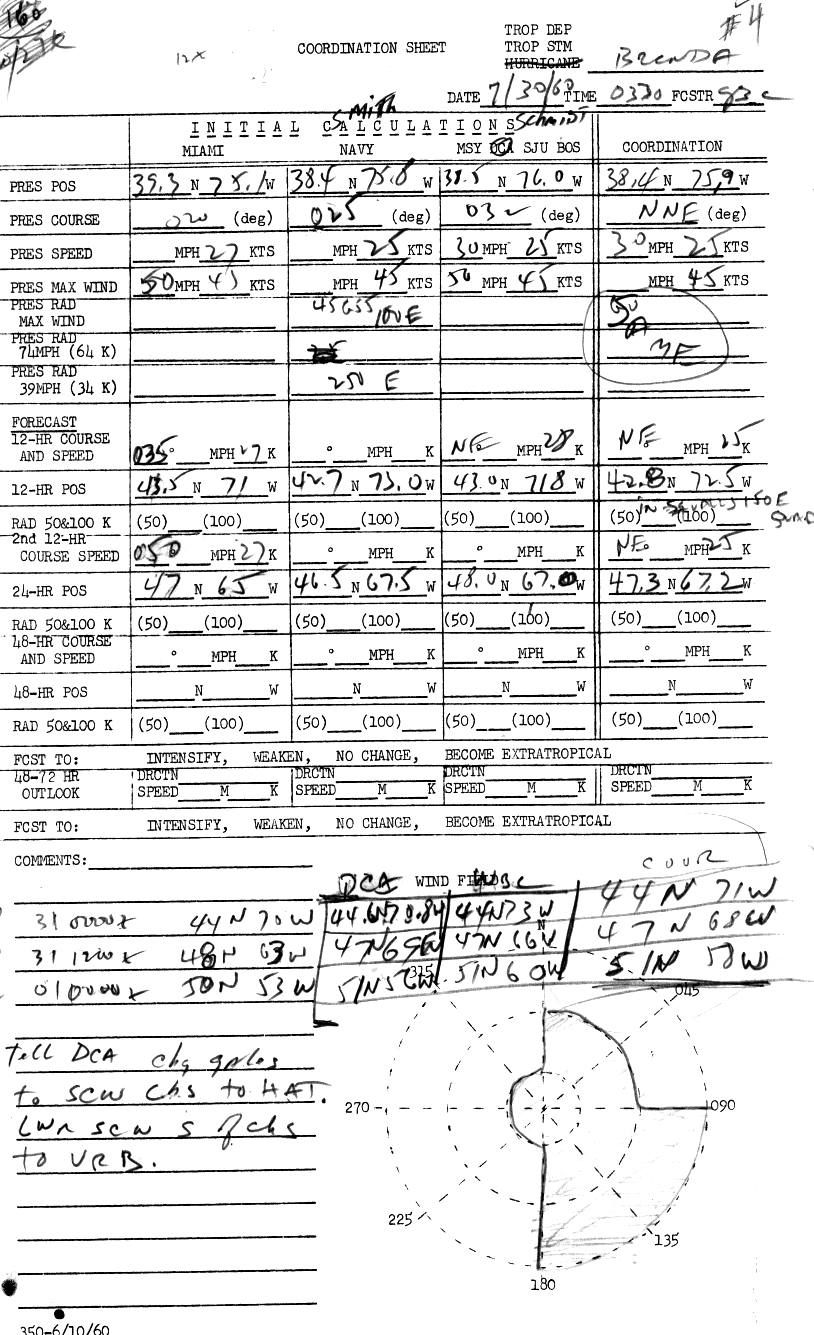 160
#4
12X
COORDINATION SHEET
TROP DEP
TROP STM
HURRICANE BRENDA
DATE 7/30/60 TIME 0330 FCSTR
SMITH
INITIAL CALCULATIONS SCHMIDT
MIAMI NAVY MSY DCA SJU BOS COORDINATION
PRES POS 39.3 N 75.1 W 38.4 N 75.8 W 38.5 N 76.0 W 38.4 N 75.9 W
PRES COURSE 020 (deg) 025 (deg) 032 (deg) NNE (deg)
PRES SPEED MPH 27 KTS MPH 25 KTS 30 MPH 25 KTS 30 MPH 25 KTS
PRES MAX WIND 50 MPH 45 KTS MPH 45 KTS 50 MPH 45 KTS MPH 45 KTS
PRES RAD
MAX WIND 45G55 100 E 50
PRES RAD
74MPH (64 K) NE
PRES RAD
39MPH (34 K) 250 E
FORECAST
12-HR COURSE
AND SPEED 035° MPH 27 K ° MPH K NE MPH 28 K NE MPH 25 K
12-HR POS 43.5 N 71 W 42.7 N 73.0 W 43.0 N 71.8 W 42.8 N 72.5 W
IN SQUALLS 150 E
RAD 50&100 K (50) (100) (50) (100) (50) (100) (50) (100) QUAD
2nd 12-HR
COURSE SPEED 050 MPH 27 K ° MPH K ° MPH K NE MPH 25 K
24-HR POS 47 N 65 W 46.5 N 67.5 W 48.0 N 67.0 W 47.3 N 67.2 W
RAD 50&100 K (50) (100) (50) (100) (50) (100) (50) (100)
48-HR COURSE
AND SPEED ° MPH K ° MPH K ° MPH K ° MPH K
48-HR POS N W N W N W N W
RAD 50&100 K (50) (100) (50) (100) (50) (100) (50) (100)
FCST TO: INTENSIFY, WEAKEN, NO CHANGE, BECOME EXTRATROPICAL
48-72 HR DRCTN DRCTN DRCTN DRCTN
OUTLOOK SPEED M K SPEED M K SPEED M K SPEED M K
FCST TO: INTENSIFY, WEAKEN, NO CHANGE, BECOME EXTRATROPICAL
COMMENTS:
COOR
DCA WIND
31 0000Z 44N 70W 44N 73W 44N 71W
31 1200Z 48N 63W 47N 69W 47N 66W 47N 68W
01 0000Z 50N 53W 51N 60W 51N 58W
315 N 045
tell DCA chg gales
to SCW Chs to HAT.
LWR SCW S of chs
to VRB.
270 090
225 135
180
350-6/10/60